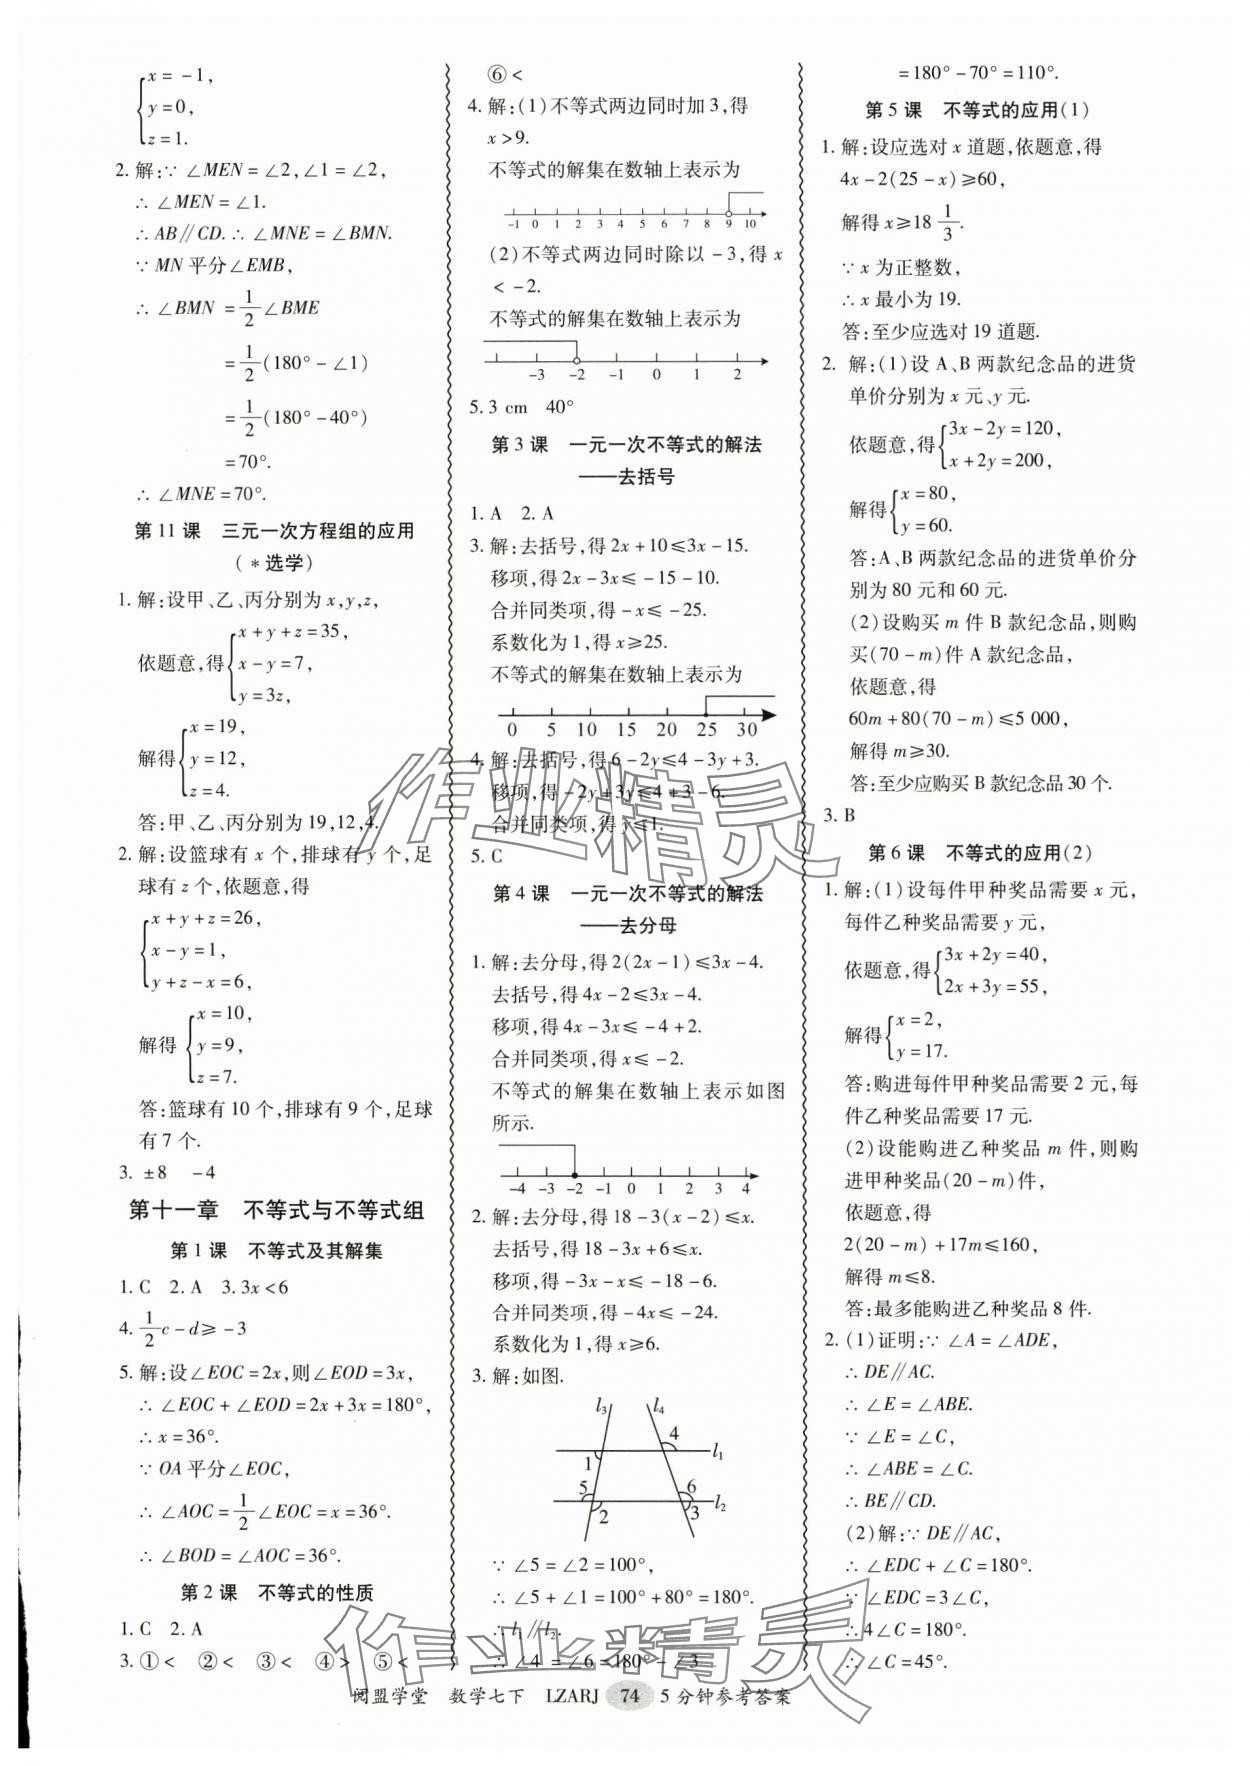 x = -1,
y = 0,
z = 1.
2. 解:∵ ∠MEN = ∠2,∠1 = ∠2,
∴ ∠MEN = ∠1.
∴ AB∥CD. ∴ ∠MNE = ∠BMN.
∵ MN 平分∠EMB,
∴ ∠BMN = 1/2 ∠BME
= 1/2 (180° - ∠1)
= 1/2 (180° - 40°)
= 70°.
∴ ∠MNE = 70°.
第 11 课 三元一次方程组的应用
( * 选学)
1. 解:设甲、乙、丙分别为 x,y,z,
依题意,得 { x + y + z = 35,
x - y = 7,
y = 3z,
解得 { x = 19,
y = 12,
z = 4.
答:甲、乙、丙分别为 19,12,4.
2. 解:设篮球有 x 个,排球有 y 个,足
球有 z 个,依题意,得
x + y + z = 26,
x - y = 1,
y + z - x = 6,
解得 { x = 10,
y = 9,
z = 7.
答:篮球有 10 个,排球有 9 个,足球
有 7 个.
3. ±8 -4
第十一章 不等式与不等式组
第 1 课 不等式及其解集
1. C 2. A 3. 3x < 6
4. 1/2 c - d ≥ -3
5. 解:设∠EOC = 2x,则∠EOD = 3x,
∴ ∠EOC + ∠EOD = 2x + 3x = 180°,
∴ x = 36°.
∵ OA 平分∠EOC,
∴ ∠AOC = 1/2 ∠EOC = x = 36°.
∴ ∠BOD = ∠AOC = 36°.
第 2 课 不等式的性质
1. C 2. A
3. ① < ② < ③ < ④ > ⑤ <
⑥ <
4. 解:(1)不等式两边同时加 3,得
x > 9.
不等式的解集在数轴上表示为
-1 0 1 2 3 4 5 6 7 8 9 10
(2)不等式两边同时除以 -3,得 x
< -2.
不等式的解集在数轴上表示为
-3 -2 -1 0 1 2
5. 3 cm 40°
第 3 课 一元一次不等式的解法
——去括号
1. A 2. A
3. 解:去括号,得 2x + 10 ≤ 3x - 15.
移项,得 2x - 3x ≤ -15 - 10.
合并同类项,得 -x ≤ -25.
系数化为 1,得 x ≥ 25.
不等式的解集在数轴上表示为
0 5 10 15 20 25 30
4. 解:去括号,得 6 - 2y ≤ 4 - 3y + 3.
移项,得 -2y + 3y ≤ 4 + 3 - 6.
合并同类项,得 y ≤ 1.
5. C
第 4 课 一元一次不等式的解法
——去分母
1. 解:去分母,得 2(2x - 1) ≤ 3x - 4.
去括号,得 4x - 2 ≤ 3x - 4.
移项,得 4x - 3x ≤ -4 + 2.
合并同类项,得 x ≤ -2.
不等式的解集在数轴上表示如图
所示.
-4 -3 -2 -1 0 1 2 3 4
2. 解:去分母,得 18 - 3(x - 2) ≤ x.
去括号,得 18 - 3x + 6 ≤ x.
移项,得 -3x - x ≤ -18 - 6.
合并同类项,得 -4x ≤ -24.
系数化为 1,得 x ≥ 6.
3. 解:如图.
l3 l4
4
1 l1
5 6
2 3 l2
∵ ∠5 = ∠2 = 100°,
∴ ∠5 + ∠1 = 100° + 80° = 180°.
∴ l1∥l2.
∴ ∠4 = ∠6 = 180° - ∠3
= 180° - 70° = 110°.
第 5 课 不等式的应用(1)
1. 解:设应选对 x 道题,依题意,得
4x - 2(25 - x) ≥ 60,
解得 x ≥ 18 1/3.
∵ x 为正整数,
∴ x 最小为 19.
答:至少应选对 19 道题.
2. 解:(1)设 A、B 两款纪念品的进货
单价分别为 x 元、y 元.
依题意,得 { 3x - 2y = 120,
x + 2y = 200,
解得 { x = 80,
y = 60.
答:A、B 两款纪念品的进货单价分
别为 80 元和 60 元.
(2)设购买 m 件 B 款纪念品,则购
买(70 - m)件 A 款纪念品,
依题意,得
60m + 80(70 - m) ≤ 5 000,
解得 m ≥ 30.
答:至少应购买 B 款纪念品 30 个.
3. B
第 6 课 不等式的应用(2)
1. 解:(1)设每件甲种奖品需要 x 元,
每件乙种奖品需要 y 元,
依题意,得 { 3x + 2y = 40,
2x + 3y = 55,
解得 { x = 2,
y = 17.
答:购进每件甲种奖品需要 2 元,每
件乙种奖品需要 17 元.
(2)设能购进乙种奖品 m 件,则购
进甲种奖品(20 - m)件,
依题意,得
2(20 - m) + 17m ≤ 160,
解得 m ≤ 8.
答:最多能购进乙种奖品 8 件.
2. (1)证明:∵ ∠A = ∠ADE,
∴ DE∥AC.
∴ ∠E = ∠ABE.
∵ ∠E = ∠C,
∴ ∠ABE = ∠C.
∴ BE∥CD.
(2)解:∵ DE∥AC,
∴ ∠EDC + ∠C = 180°.
∵ ∠EDC = 3∠C,
∴ 4∠C = 180°.
∴ ∠C = 45°.
作业精灵
作业精灵
阅盟学堂 数学七下 LZARJ 74 5 分钟参考答案